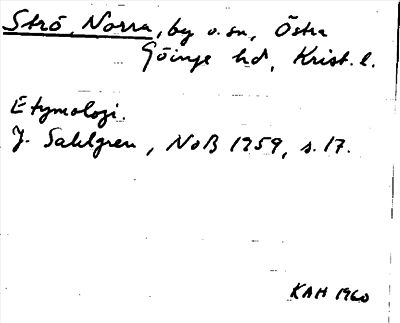 Strö, Norra, by o. sn, Östra
Göinge hd, Krist. l.
Etymologi.
J. Sahlgren, NoB 1959, s. 17.
KAH 1960